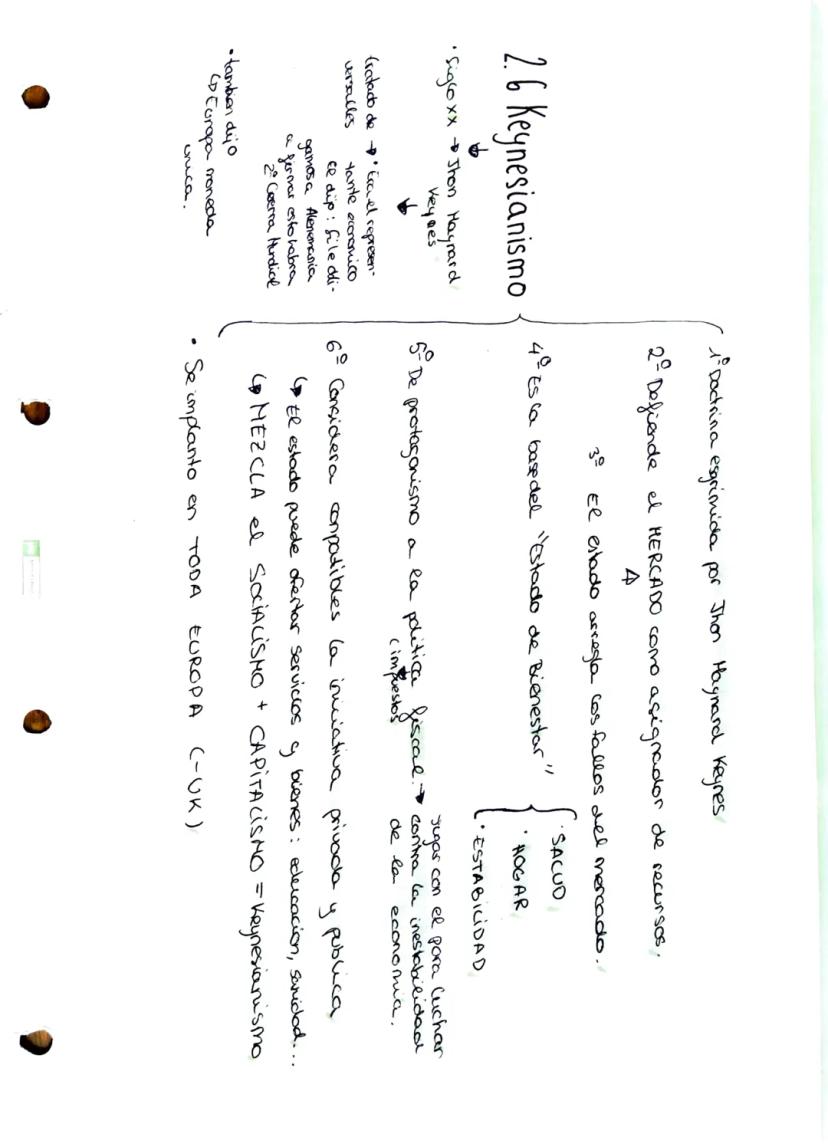 2.6 Keynesianismo
• Siglo XX → Jhon Maynard
Keynes
tratado de → • Era el represen-
versalles tante economico
El dijo: si le obli-
gamos a Alemania
a firmar esto habra
2º Guerra Mundial
• tambien dijo
↳ Europa moneda
unica.
1º Doctrina esgrimida por Jhon Maynard Keynes
2º Defiende el MERCADO como asignador de recursos.
3º El estado arregla los fallos del mercado.
4º Es la base del "Estado de Bienestar"
• SALUD
• HOGAR
• ESTABILIDAD
5º De protagonismo a la política fiscal. → Jugar con el para luchar
(impuestos contra la inestabilidad
de la economia.
6º Considera conpatibles la iniciativa privada y publica
↳ El estado puede ofertar servicios y bienes: educacion, sanidad...
↳ MEZCLA el SOCIALISMO + CAPITALISMO = Keynesianismo
• Se implanto en TODA EUROPA (-UK)